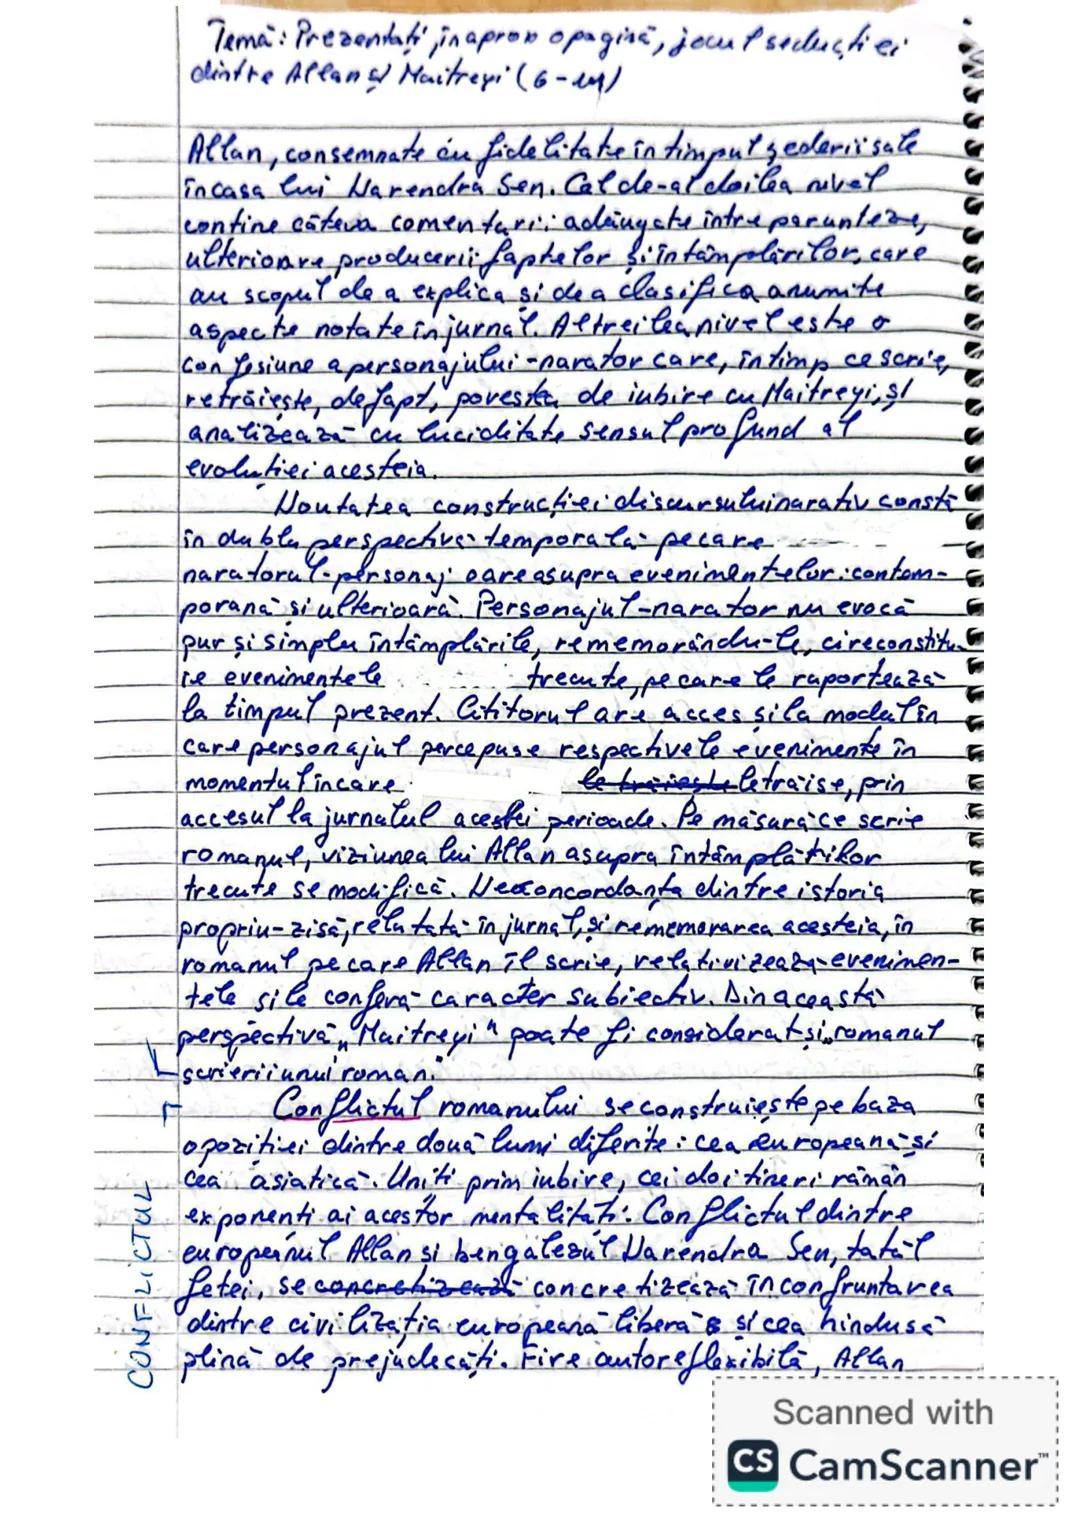 Temă: Prezentați, în aprox o pagină, jocul seducției
dintre Allan și Maitreyi (6-
Allan, consemnate cu fidelitate în timpul șederii sale
în casa lui Narendra Sen. Cel de-al doilea nivel
conține câteva comentarii adăugate între paranteze,
ulterioare producerii faptelor și întâmplărilor, care
au scopul de a explica și de a clasifica anumite
aspecte notate în jurnal. Al treilea nivel este o
confesiune a personajului-narator care, în timp ce scrie,
retrăiește, de fapt, povestea de iubire cu Maitreyi, și
analizează cu luciditate sensul profund al
evoluției acesteia.
Noutatea construcției discursului narativ constă
în dubla perspectivă temporală pe care
naratorul-personaj o are asupra evenimentelor: contem-
porană și ulterioară. Personajul-narator nu evocă
pur și simplu întâmplările, rememorându-le, ci reconstitu-
ie evenimentele trecute, pe care le raportează
la timpul prezent. Cititorul are acces și la modul în
care personajul percepuse respectivele evenimente în
momentul în care le trăiește le trăise, prin
accesul la jurnalul acestei perioade. Pe măsură ce scrie
romanul, viziunea lui Allan asupra întâmplărilor
trecute se modifică. Neconcordanța dintre istoria
propriu-zisă, relatată în jurnal, și rememorarea acesteia, în
romanul pe care Allan îl scrie, relativizează evenimen-
tele și le conferă caracter subiectiv. Din această
perspectivă, „Maitreyi" poate fi considerat și „romanul
scrierii unui roman."
Conflictul romanului se construiește pe baza
opoziției dintre două lumi diferite: cea europeană și
cea asiatică. Uniți prin iubire, cei doi tineri rămân
exponenți ai acestor mentalități. Conflictul dintre
europeanul Allan și bengalezul Narendra Sen, tatăl
fetei, se concretizează concretizează în confruntarea
dintre civilizația europeană liberă și cea hindusă
plină de prejudecăți. Fire autoreflexibilă, Allan
CONFLICTUL
Scanned with
CS CamScanner™